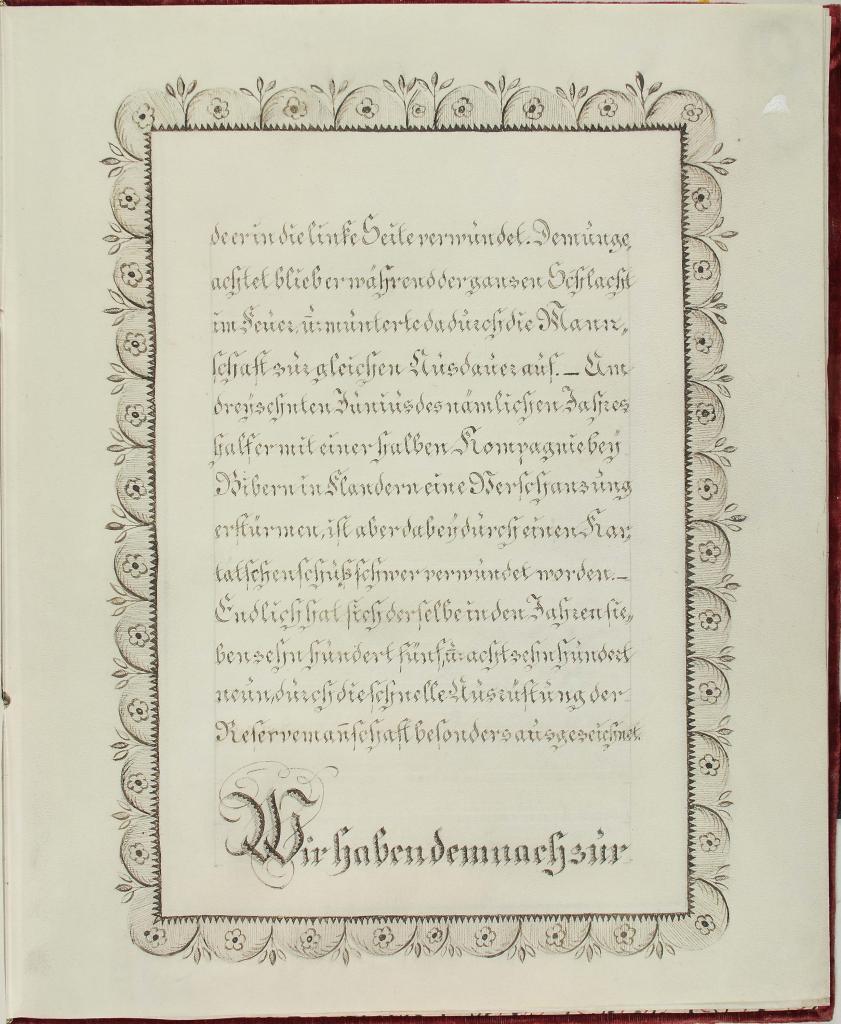 de er in die linke Seite verwundet. Demunge,
achtet blieb er während der ganzen Schlacht
im Feuer, u: munterte dadurch die Mann„
schaft zur gleichen Ausdauer auf. – Am
dreyzehnten Junius des nämlichen Jahres
half er mit einer halben Kompagnie bey
Bibern in Flandern eine Verschanzung
erstürmen, ist aber dabey durch einen Kar,
tatschenschuß schwer verwundet worden. –
Endlich hat sich derselbe in den Jahren sie„
benzehn hundert fünf, u: achtzehn hundert
neun, durch die schnelle Ausrüstung der
Reserveman̄schaft besonders ausgezeichnet.
Wir haben demnach zur